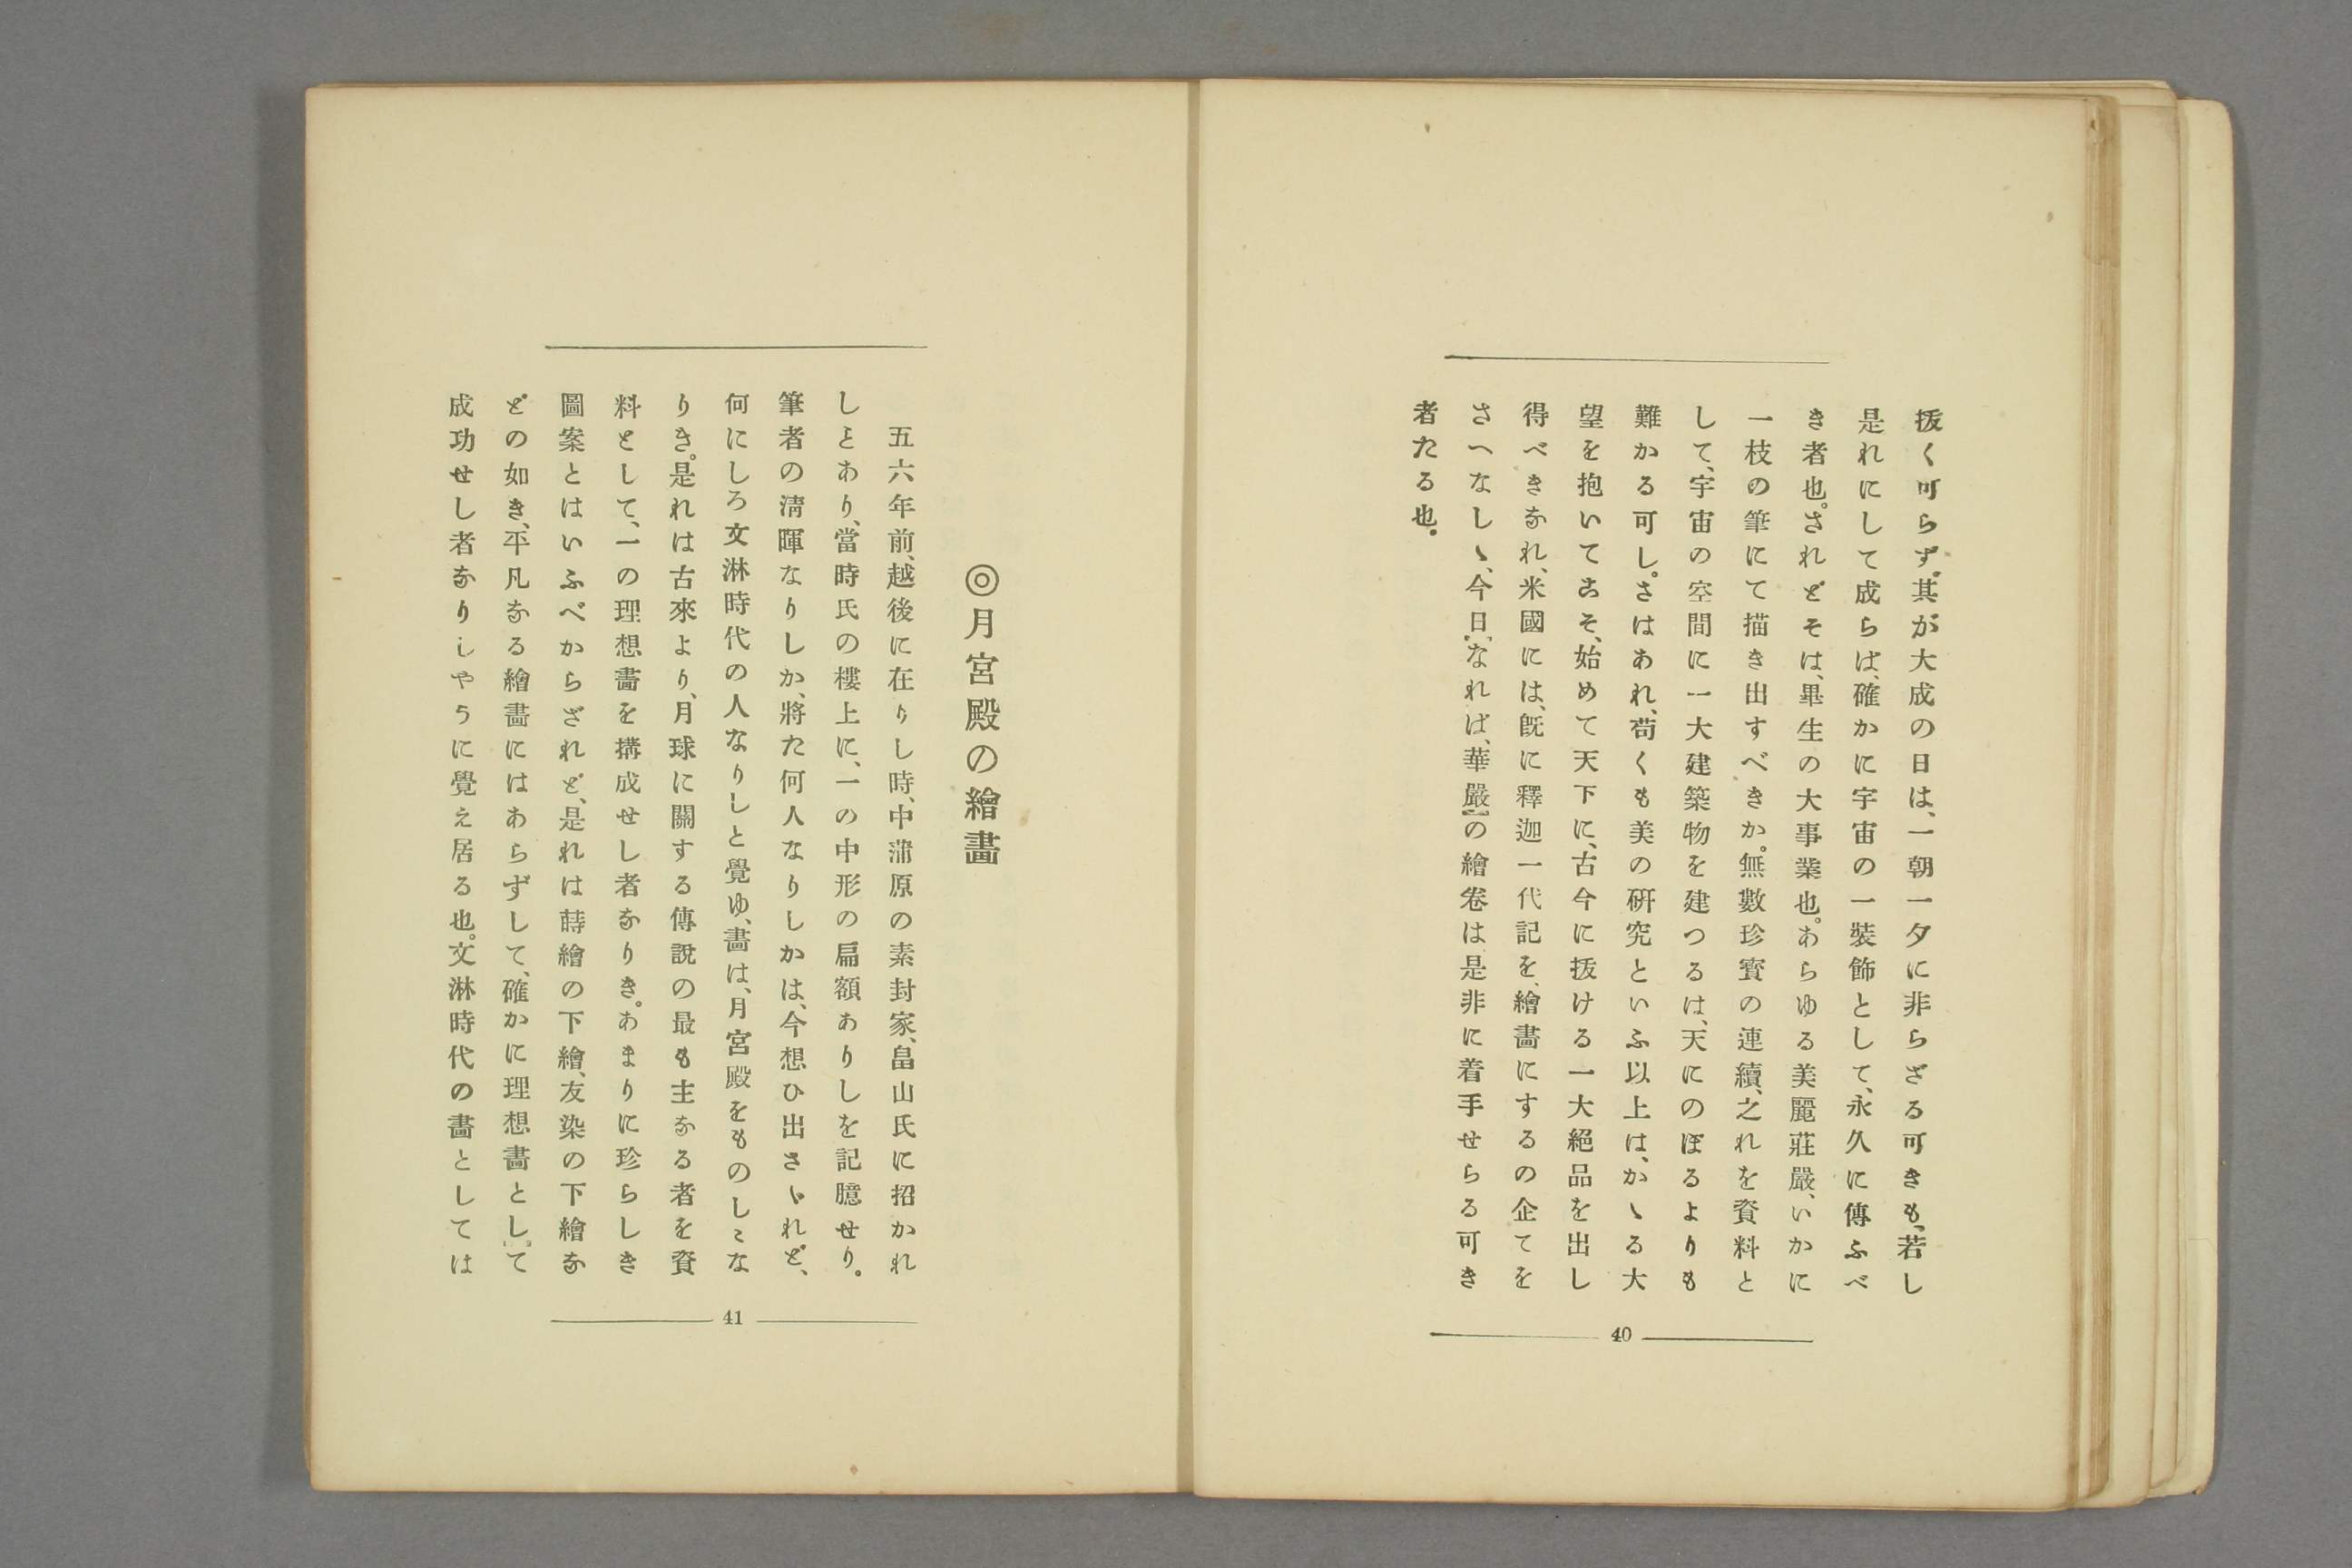 抜く可らず。其が大成の日は、一朝一夕に非らざる可きも、若し
是れにして成らば、確かに宇宙の一裝飾として、永久に傳ふべ
き者也。されどそは、畢生の大事業也。あらゆる美麗莊嚴、いかに
一枝の筆にて描き出すべきか。無數珍寳の連續、之れを資料と
して、宇宙の空間に一大建築物を建つるは、天にのぼるよりも
難かる可し。さはあれ、苟くも美の硏究といふ以上は、かゝる大
望を抱いてこそ、始めて天下に、古今に抜ける一大絕品を出し
得べきなれ、米國には、旣に釋迦一代記を、繪畵にするの企てを
さへなしゝ、今日なれば、華嚴の繪卷は是非に着手せらる可き
者たる也。
40
◎月宮殿の繪畵
五六年前、越後に在りし時、中蒲原の素封家、畠山氏に招かれ
しとあり、當時氏の樓上に、一の中形の扁額ありしを記臆せり。
筆者の淸暉なりしか、將た何人なりしかは、今想ひ出さゞれど、
何にしろ文淋時代の人なりしと覺ゆ、畵は、月宮殿をものしゝな
りき。是れは古來より、月球に關する傳說の最も主なる者を資
料として、一の理想畵を搆成せし者なりき。あまりに珍らしき
圖案とはいふべからざれど、是れは蒔繪の下繪、友染の下繪な
どの如き、平凡なる繪畵にはあらずして、確かに理想畵として
成功せし者なりしやうに覺え居る也。文淋時代の畵としては
41